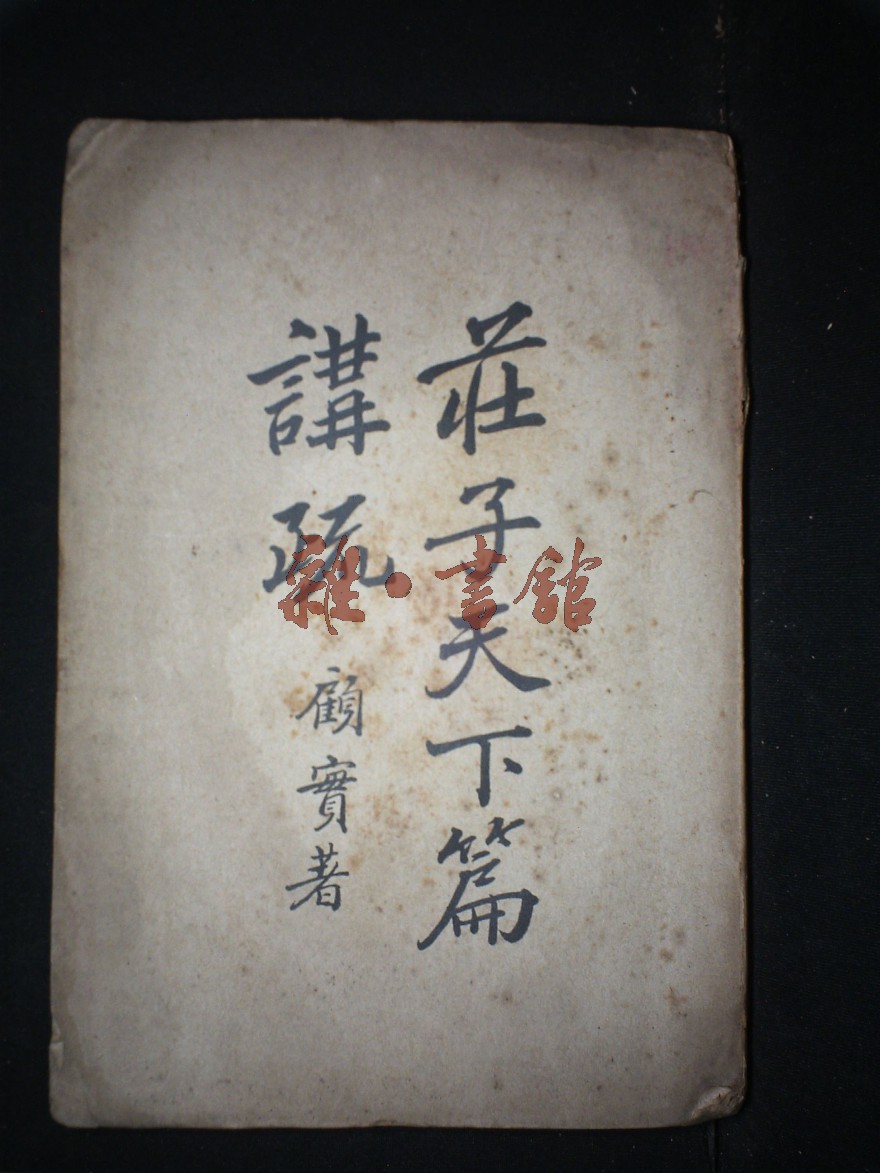 莊子天下篇
講疏
顧實著
雜·書館